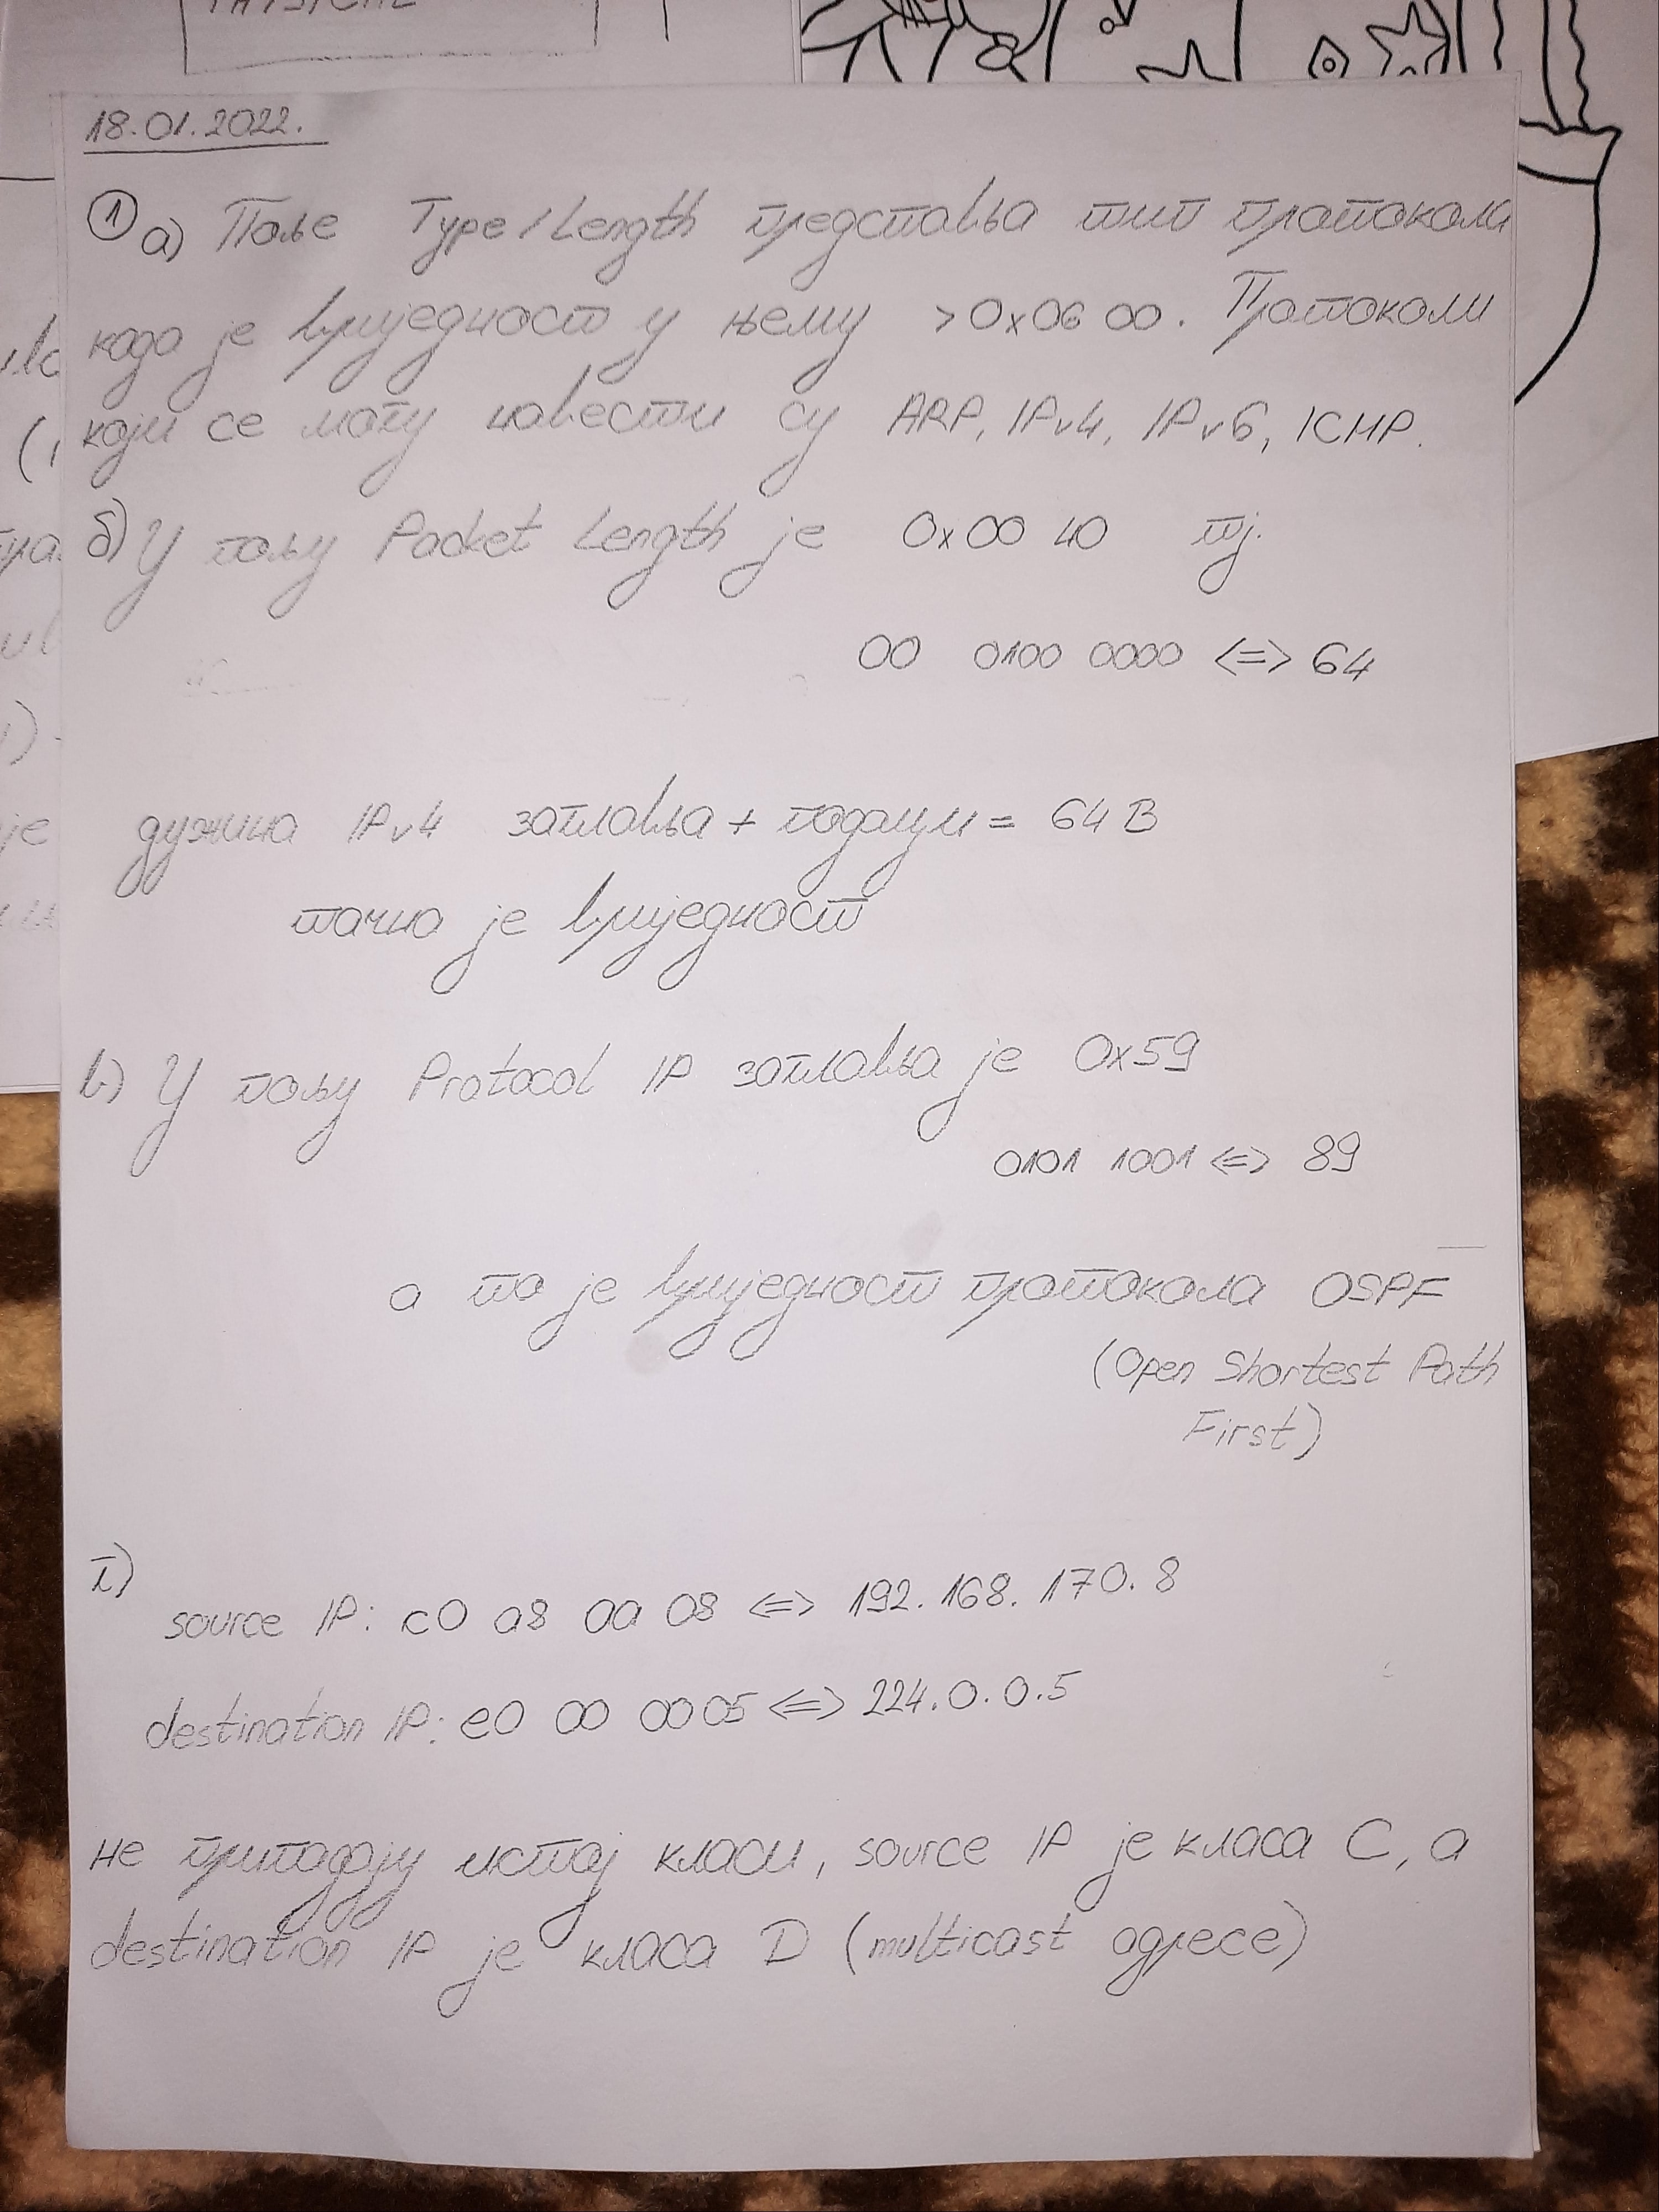 PHYSICAL
18.01.2022.
① а) Поље Type/Length представља тип протокола
када је вриједност у њему >0x06 00. Протоколи
који се могу навести су ARP, IPv4, IPv6, ICMP.
б) У пољу Packet Length је 0x00 40 тј.
00 0100 0000 <=> 64
дужина IPv4 заглавља + подаци = 64 B
тачна је вриједност
в) У пољу Protocol IP заглавља је 0x59
0101 1001 <=> 89
а то је вриједност протокола OSPF
(Open Shortest Path
First)
г)
source IP: c0 a8 aa 08 <=> 192.168.170.8
destination IP: e0 00 00 05 <=> 224.0.0.5
не припадају истој класи, source IP је класа C, а
destination IP је класа D (multicast адресе)